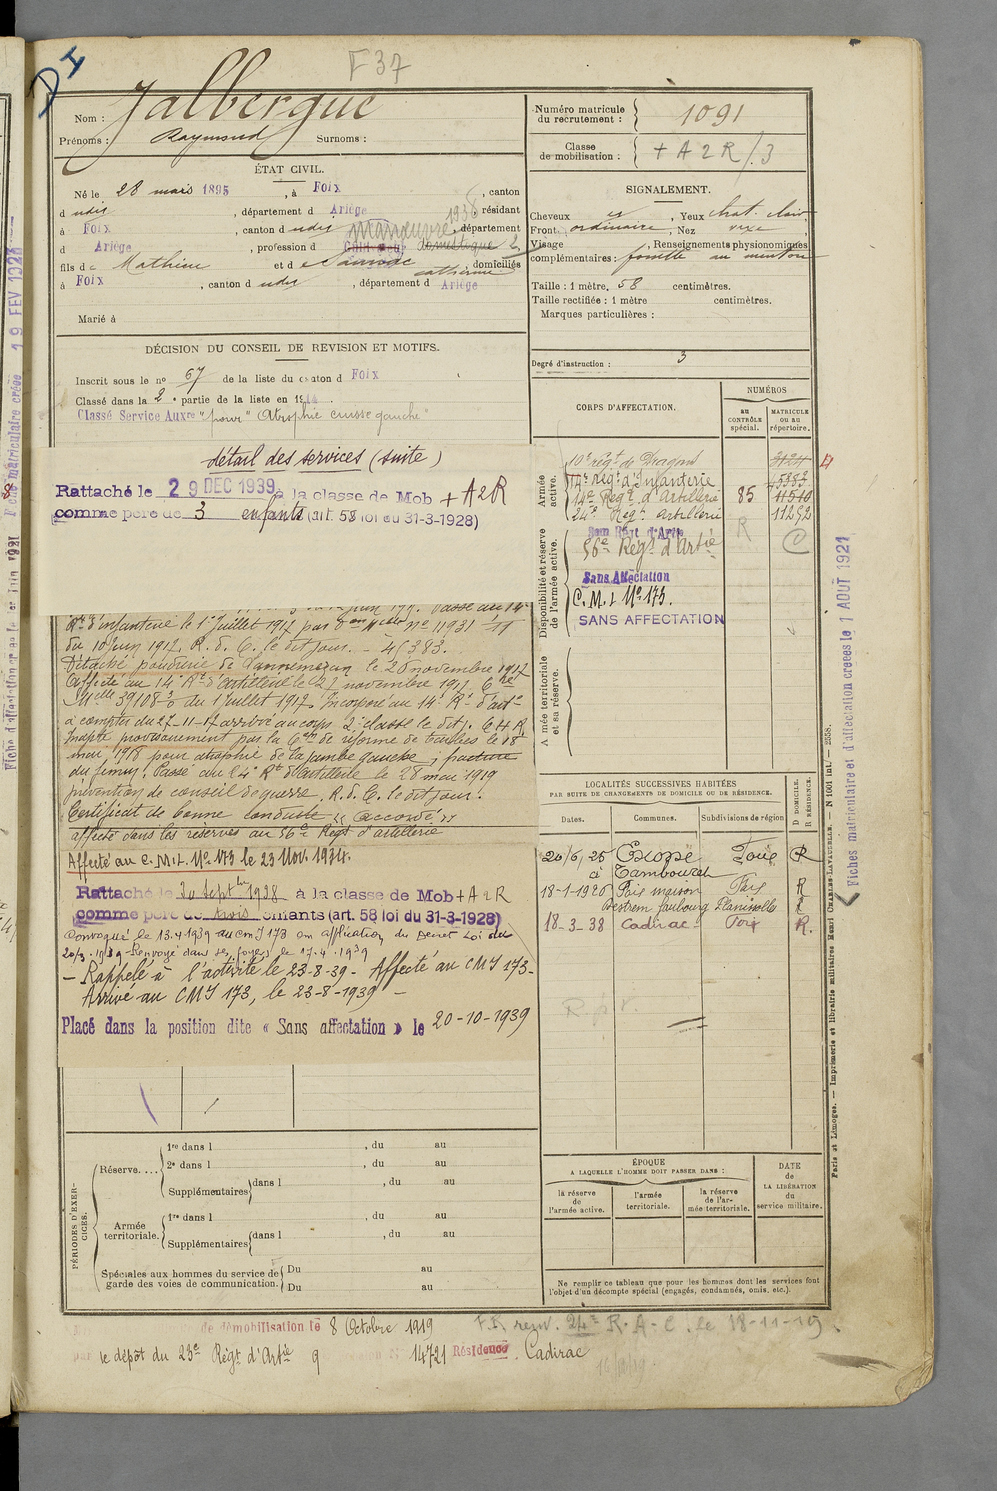 F 37
DI
Nom : Jalbergue
Prénoms : Raymond Surnoms :
Numéro matricule du recrutement : 1091
Classe de mobilisation : + A 2 R / 3
ÉTAT CIVIL.
Né le 28 mars 1895, à Foix, canton
d udis, département d Ariège, résidant
à Foix, canton d udis, département
d Ariège, profession d manœuvre domestique 2
fils de Mathieu et d Catherine, domiciliés
à Foix, canton d udis, département d Ariège
Marié à
SIGNALEMENT.
Cheveux, Yeux chat. clair
Front ordinaire, Nez
Visage, Renseignements physionomiques
complémentaires : fossette au menton
Taille : 1 mètre, 58 centimètres.
Taille rectifiée : 1 mètre centimètres.
Marques particulières :
Degré d'instruction : 3
DÉCISION DU CONSEIL DE REVISION ET MOTIFS.
Inscrit sous le no 67 de la liste du canton d Foix
Classé dans la 2e partie de la liste en 1914
Classé Service Auxre "pour" Atrophie cuisse gauche"
détail des services (suite)
Rattaché le 29 DEC 1939 à la classe de Mob + A2R
comme père de 3 enfants (art. 58 loi du 31-3-1928)
CORPS D'AFFECTATION.
NUMÉROS
au CONTRÔLE spécial.
MATRICULE ou au répertoire.
Armée active.
10e régt de Dragons 3124
14e Régt d'Infanterie 45383
14e Régt d'Artillerie 85 11510
24e Régt Artillerie 11292
Disponibilité et réserve de l'armée active.
56e Régt d'Artie
Sans Affectation
C.M.I. No 173.
SANS AFFECTATION
R
C
Armée territoriale et sa réserve.
Passé au 14e
Rt d'infanterie le 1er Juillet 1917 par don Melle no 11931
du 10 Juin 1917. R. d. C. le dit jour. - 45383.
Détaché poudrerie de Lannemezan le 20 novembre 1917
Affecté au 14e Rt d'artillerie le 27 novembre 1917. Cre
Melle 39108 du 1 Juillet 1917. Incorporé au 14e Rt d'art
à compter du 27-11-17 arrivé au corps 2e classe le dit j.
Inapte provisoirement par la Con de réforme de Tarbes le 18
mai 1918 pour atrophie de la jambe gauche, fracture
du fémur. Passé au 24e Rt d'artillerie le 28 mai 1919
prévention de conseil de guerre. R. d. C. le dit jour.
Certificat de bonne conduite "accordé"
affecté dans les réserves au 56e Régt d'artillerie
Affecté au C.M.I. No 173 le 23 Nov. 1934.
Rattaché le 30 Septbre 1938 à la classe de Mob + A2R
comme père de trois enfants (art. 58 loi du 31-3-1928)
Convoqué le 13.4.1939 au cmI 173 en application du Décret Loi du
20/3.1939 - Renvoyé dans ses foyers le 17.4.1939
- Rappelé à l'activité le 23-8-39 - Affecté au CMI 173 -
Arrivé au CMI 173, le 23-8-1939 -
Placé dans la position dite « Sans affectation » le 20-10-1939
LOCALITÉS SUCCESSIVES HABITÉES
PAR SUITE DE CHANGEMENTS DE DOMICILE OU DE RÉSIDENCE.
Dates. Communes. Subdivisions de région D. DOMICILE. R. RÉSIDENCE.
20/6, 25 Escosse Foix R
à Tambouret
18-1-1926 Foix maison Foix R
Destrem faubourg Planissolle R
18-3-38 Cadirac Foix R.
PÉRIODES D'EXERCICES.
Réserve....
1re dans l , du au
2e dans l , du au
Supplémentaires dans l , du au
Armée territoriale.
1re dans l , du au
Supplémentaires dans l , du au
Spéciales aux hommes du service de garde des voies de communication.
Du au
Du au
ÉPOQUE
A LAQUELLE L'HOMME DOIT PASSER DANS :
la réserve de l'armée active.
l'armée territoriale.
la réserve de l'armée territoriale.
DATE DE LA LIBÉRATION du service militaire.
Ne remplir ce tableau que pour les hommes dont les services font
l'objet d'un décompte spécial (engagés, condamnés, omis, etc.).
de démobilisation le 8 Octobre 1919
F.R. renv. 24e R.A.C. le 18-11-19.
par le dépôt du 23e Régt d'Artie 9 No 14721 Résidence Cadirac
Paris et Limoges. — Imprimerie et librairie militaires Henri CHARLES-LAVAUZELLE. — N° 1601 int. — 2558.
Fiches matriculaire et d'affectation créées le 1 AOUT 1921
Fiche matriculaire créée 19 FEV 1928